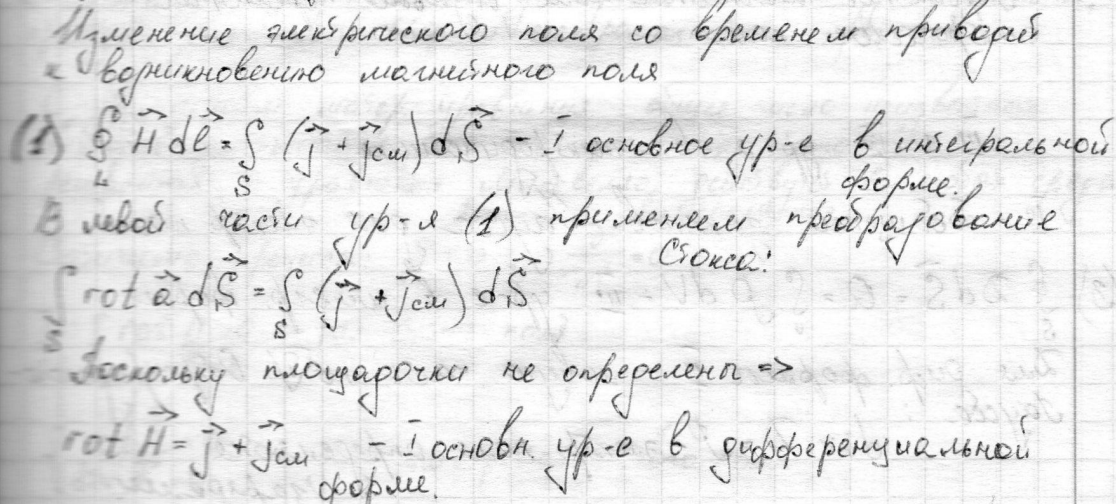 Изменение электрического поля со временем приводит
к возникновению магнитного поля
(1) ∮_L H⃗ dl⃗ = ∫_S (j⃗ + j⃗см) dS⃗ – I основное ур-е в интегральной
форме.
В левой части ур-я (1) применяем преобразование
Стокса:
∫_S rot a⃗ dS⃗ = ∫_S (j⃗ + j⃗см) dS⃗
Поскольку площадочки не определены =>
rot H⃗ = j⃗ + j⃗см – I основн. ур-е в дифференциальной
форме.